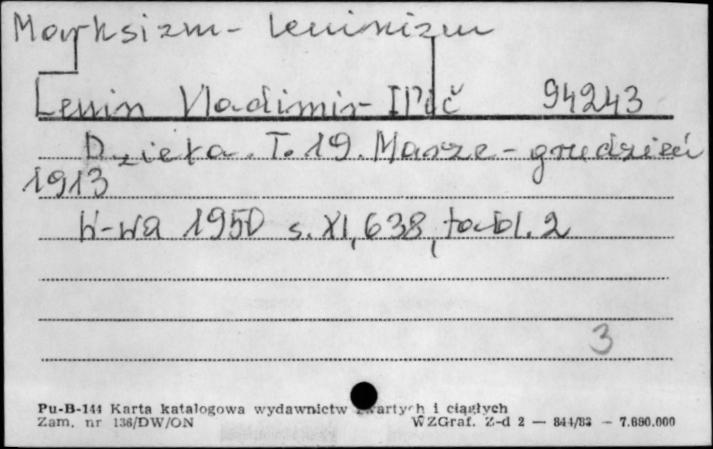 Marksizm-leninizm
Lenin Vladimir Il'ič 94243
Dzieła. T. 19. Marzec-grudzień
1913
W-wa 1950 s. XI, 638, tabl. 2
3
Pu-B-144 Karta katalogowa wydawnictw zwartych i ciągłych
Zam. nr 136/DW/ON WZGraf. Z-d 2 — 844/83 — 7.880.000